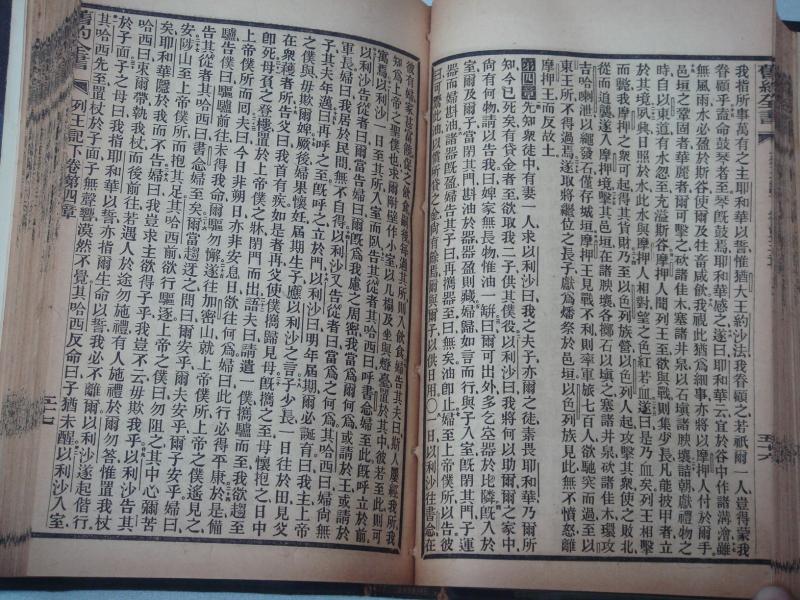 我指所事萬有之主耶和華以誓惟猶大王約沙法我眷顧之若祇爾一人豈得蒙我
眷顧乎盍命鼓琴者至琴既鼓焉耶和華感之遂曰耶和華云宜於谷中作諸溝澮雖
無風雨水必盈於斯谷使爾及牲畜咸飲我視此猶為細事亦將以摩押人付於爾手
邑垣之鞏固者華麗者爾可擊之砍諸佳木塞諸井泉以石壞諸腴壤詰朝獻禮物之
時自以東道有水忽至充溢斯谷摩押人聞列王至欲與戰則集少長凡能披甲者立
於其境夙興日照於水此水與摩押人相對望之色紅若血遂曰是乃血矣列王相擊
而斃我摩押之眾可起得其貨財乃至以色列族營以色列人起攻擊其眾使之敗北
從而追襲遂入摩押境擊其邑垣在諸腴壤各擲石以壞之塞諸井泉砍諸佳木環攻
吉哈喇泄以繩發石僅存城垣摩押王見戰不利則率軍旅七百人欲馳突而過至以
東王所不得過焉遂取將繼位之長子獻為燔祭於邑垣以色列族見此無不憤怒離
摩押王而反故土
第四章先知眾徒中有妻一人求以利沙曰我之夫子亦爾之徒素畏耶和華乃爾所
知今已死矣有貸金者至欲取我二子供其僕役以利沙曰我將何以助爾爾之家中
尚有何物請以告我曰婢家無長物惟油一缾曰爾可出外多乞空器於比隣既入於
室爾與爾子當閉其門斟油於器器盈則藏婦歸如言而行與子入室既閉其門子運
器而婦斟油諸器既盈婦告其子曰再攜器至曰無矣油卽止婦至上帝僕所以告彼
曰可鬻此油以償所貸之金尚有餘焉爾與爾子以供日用○一日以利沙往書念在
彼有婦家甚富強之飲食厥後每過其所則入飲食婦告其夫曰斯人屢經我所我
知為上帝之聖僕也求爾附壁作小室以几榻及坐與燈臺置於其中彼若至此則可
寓焉以利沙一日至其所入室而臥告其從者其哈西曰呼書念婦至此既呼婦立於前
以利沙告從者曰當告婦曰爾既為我慮之周密我當為爾何為或請於王或請於
軍長婦曰我居於民間無不自得以利沙又告從者曰當為之何為其哈西曰婦尚無
子其夫年邁曰再呼之至既呼之立於門以利沙曰明年屆期爾必誕育曰我主上帝
之僕與毋欺爾婢厥後婦果懷妊屆期生子應以利沙之言子少長一日往於田見父
在眾穫者所告父曰我首有疾如是者再父使僕攜歸見母既攜之至母懷抱之日中
卽死母負之登樓置於上帝僕之牀閉門而出語夫曰請遣一僕攜驢而至我欲趨至
上帝僕所而回夫曰今日非朔日亦非安息日欲往何為婦曰此行必得平康於是備
驢告僕曰驅驢前往未得我命爾驅勿懈遂往加密山就上帝僕所上帝之僕遙見之
告其從者其哈西曰書念婦至矣爾當趨迓之問曰爾安乎爾夫安乎爾子安乎婦曰
安陟山至上帝僕所而抱其足其哈西前欲行驅逐上帝之僕曰勿阻之其中心彌苦
耶和華隱於我而不告婦曰我豈求主欲得子乎我豈不云毋欺我乎以利沙告其
哈西曰束爾帶執我杖而後前往若遇人於途勿施禮有人施禮於爾勿答惟置我杖
於子面子之母曰我指耶和華以誓亦指爾生命以誓我必不離爾以利沙遂起偕行
其哈西先至置杖於子面子無聲響漠然不覺其哈西反命曰子猶未醒以利沙入室
舊約全書
列王記下卷第四章